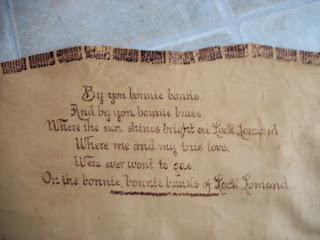 By yon bonnie banks,
And by yon bonnie braes,
Where the sun shines bright on Lock Lomond.
Where me and my true love,
Were ever wont to gae,
On the bonnie, bonnie banks of Lock Lomond.